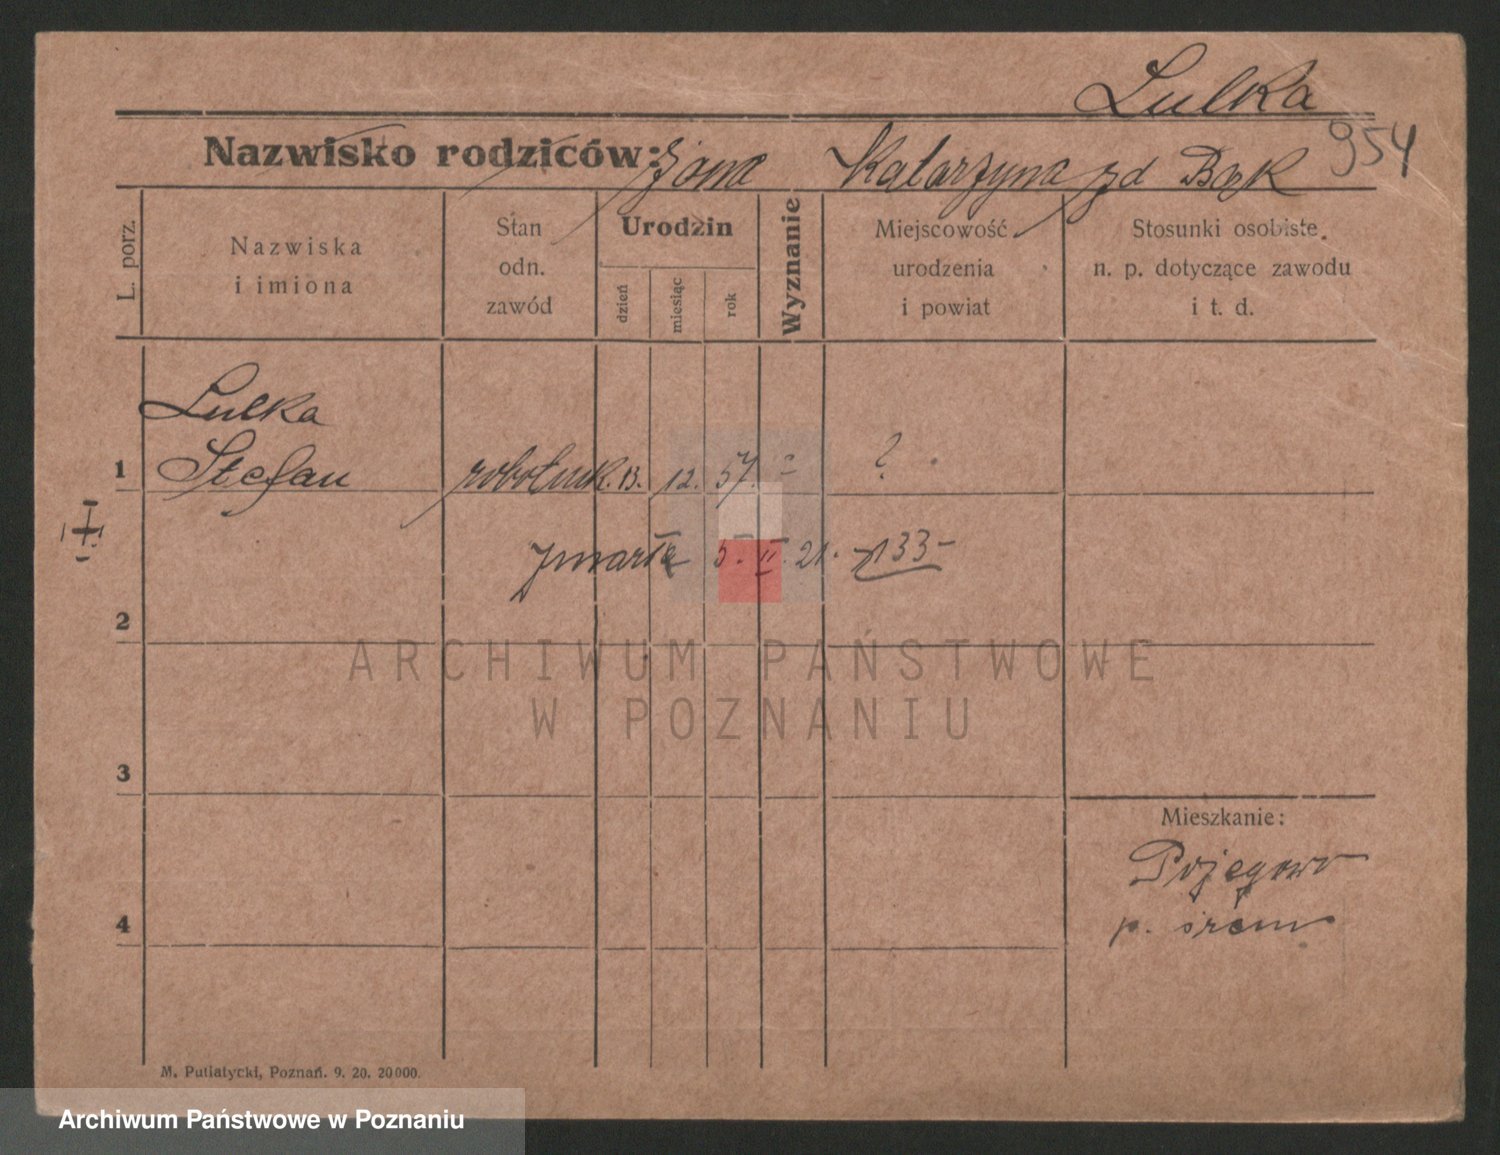 Lulka
954
Nazwisko rodziców: Jana Katarzyna zd Bąk
L. porz.
Nazwiska
i imiona
Stan
odn.
zawód
Urodzin
dzień
miesiąc
rok
Wyznanie
Miejscowość
urodzenia
i powiat
Stosunki osobiste
n. p. dotyczące zawodu
i t. d.
Lulka
1 Stefan robotnik. 13. 12. 57. ?
I
zmarł 5. II. 21. 133-
2
ARCHIWUM PAŃSTWOWE
W POZNANIU
3
Mieszkanie:
4
p. śrem
M. Putiatycki, Poznań. 9. 20. 20000.
Archiwum Państwowe w Poznaniu